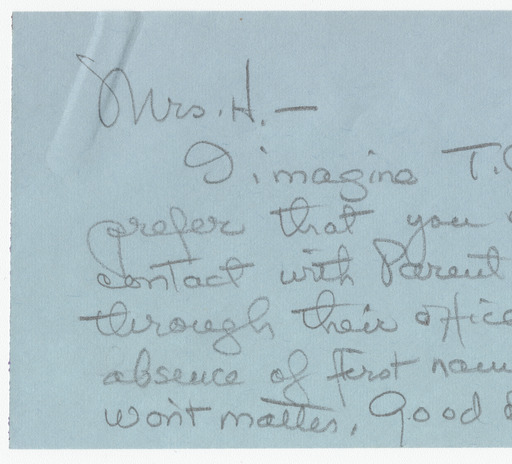 Mrs. H. —
I imagine T.
prefer that you
contact with Parent
through their office
absence of first
won't matter. Good